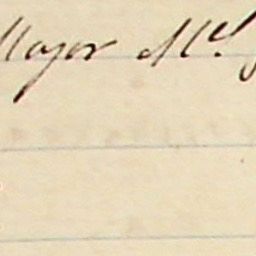 Major Mc